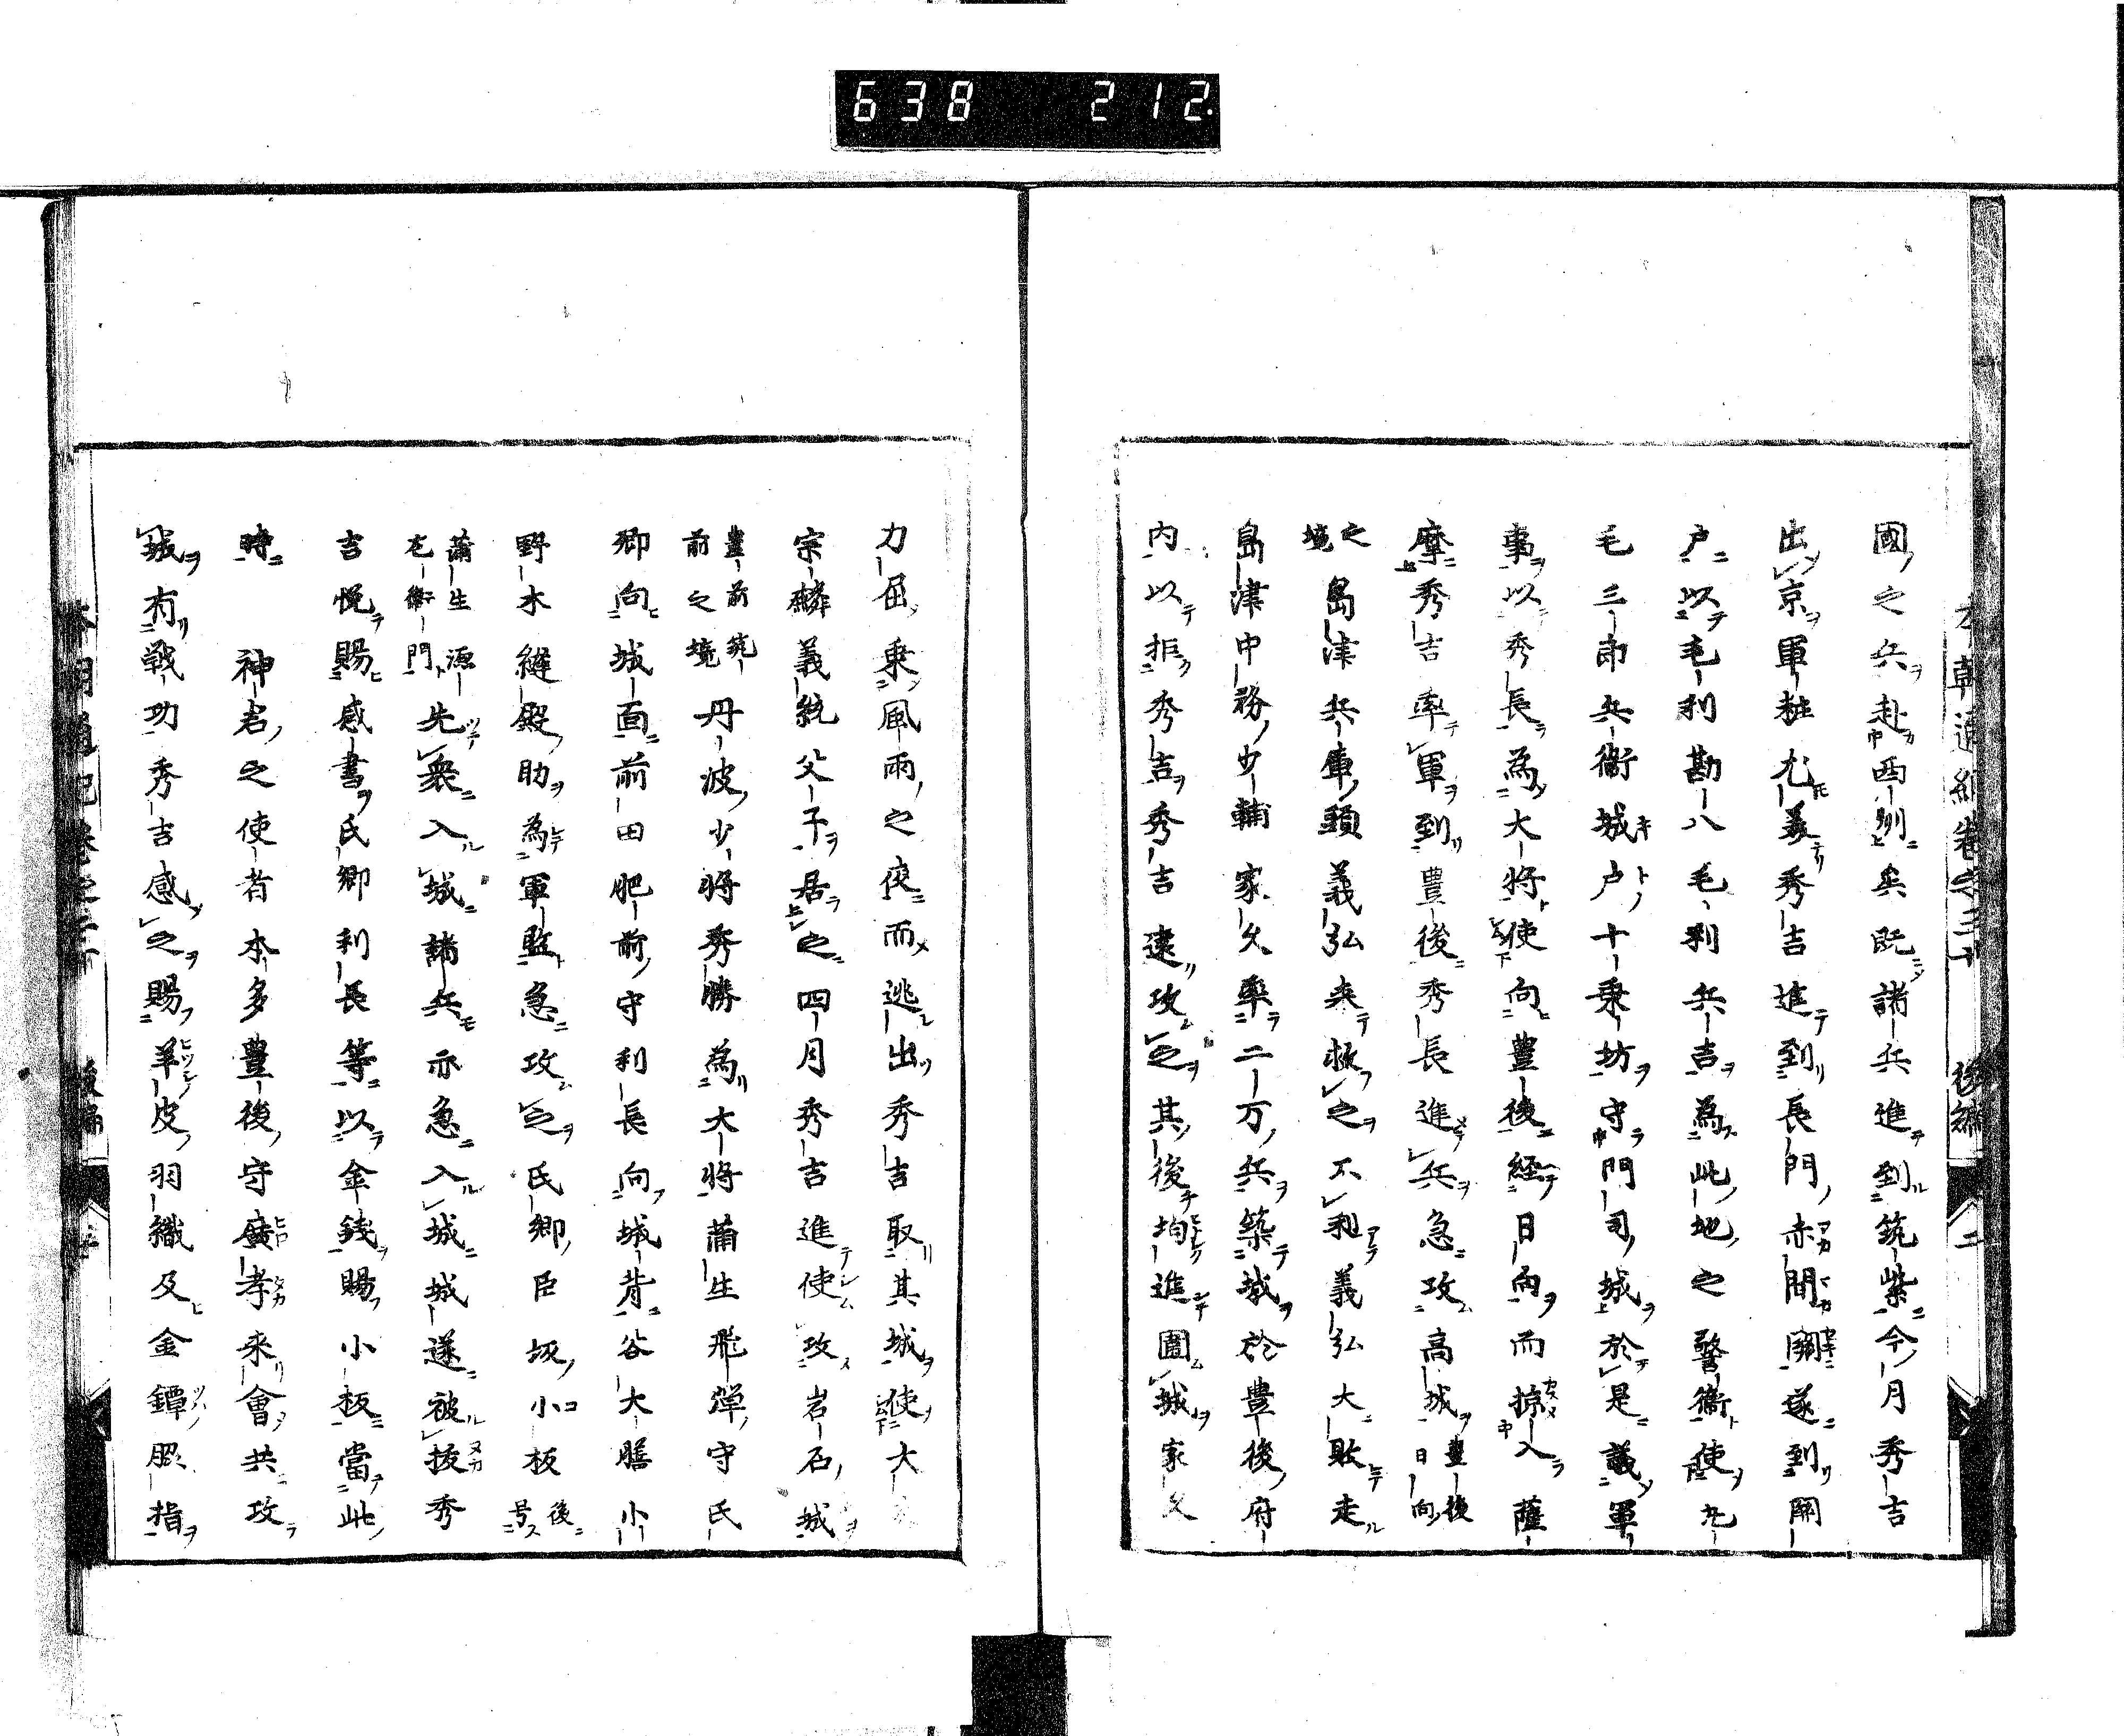 638 212
國之兵赴西州矣既諸兵進到筑紫今月秀吉
出京軍粧尤美秀吉進到長門赤間關遂到関
戸以毛利勘八毛利兵吉為此地之警衛使九
毛三郎兵衛城戸十乗坊守門司城於是議軍
事以秀長為大将使向豊後経日向而掠入薩
摩秀吉率軍到豊後秀長進兵急攻高城豊後日向
之境島津兵庫頭義弘来救之不利義弘大敗走
島津中務少輔家久率二万兵築城於豊後府
内以拒秀吉秀吉逮攻之其後均進圍城家久
力屈乗風雨之夜而逃出秀吉取其城使大
宗麟義統父子居之四月秀吉進使攻岩石城
豊前筑前之境丹波少将秀勝為大将蒲生飛弾守氏
卿向城面前田肥前守利長向城背谷大膳小
野木縫殿助為軍監急攻之氏卿臣坂小板後号
蒲生源左衛門先衆入城諸兵亦急入城城遂被抜秀
吉悦賜感書氏卿利長等以金銭賜小板當此
時 神君之使者本多豊後守廣孝来會共攻
城有戦功秀吉感之賜羊皮羽織及金鐔脇指